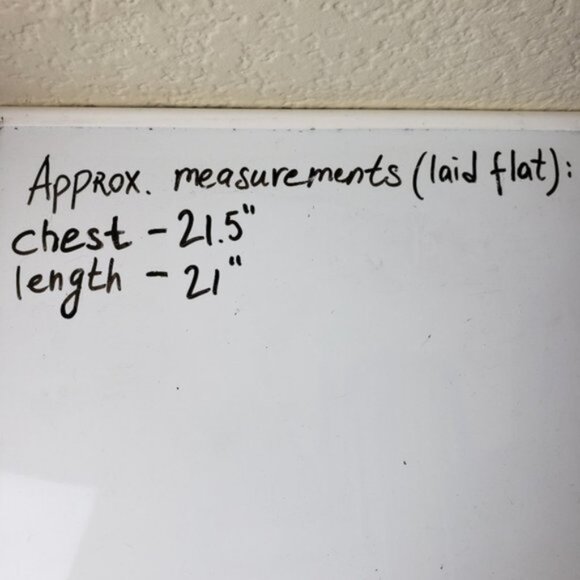 Approx. measurements (laid flat):
chest - 21.5"
length - 21"